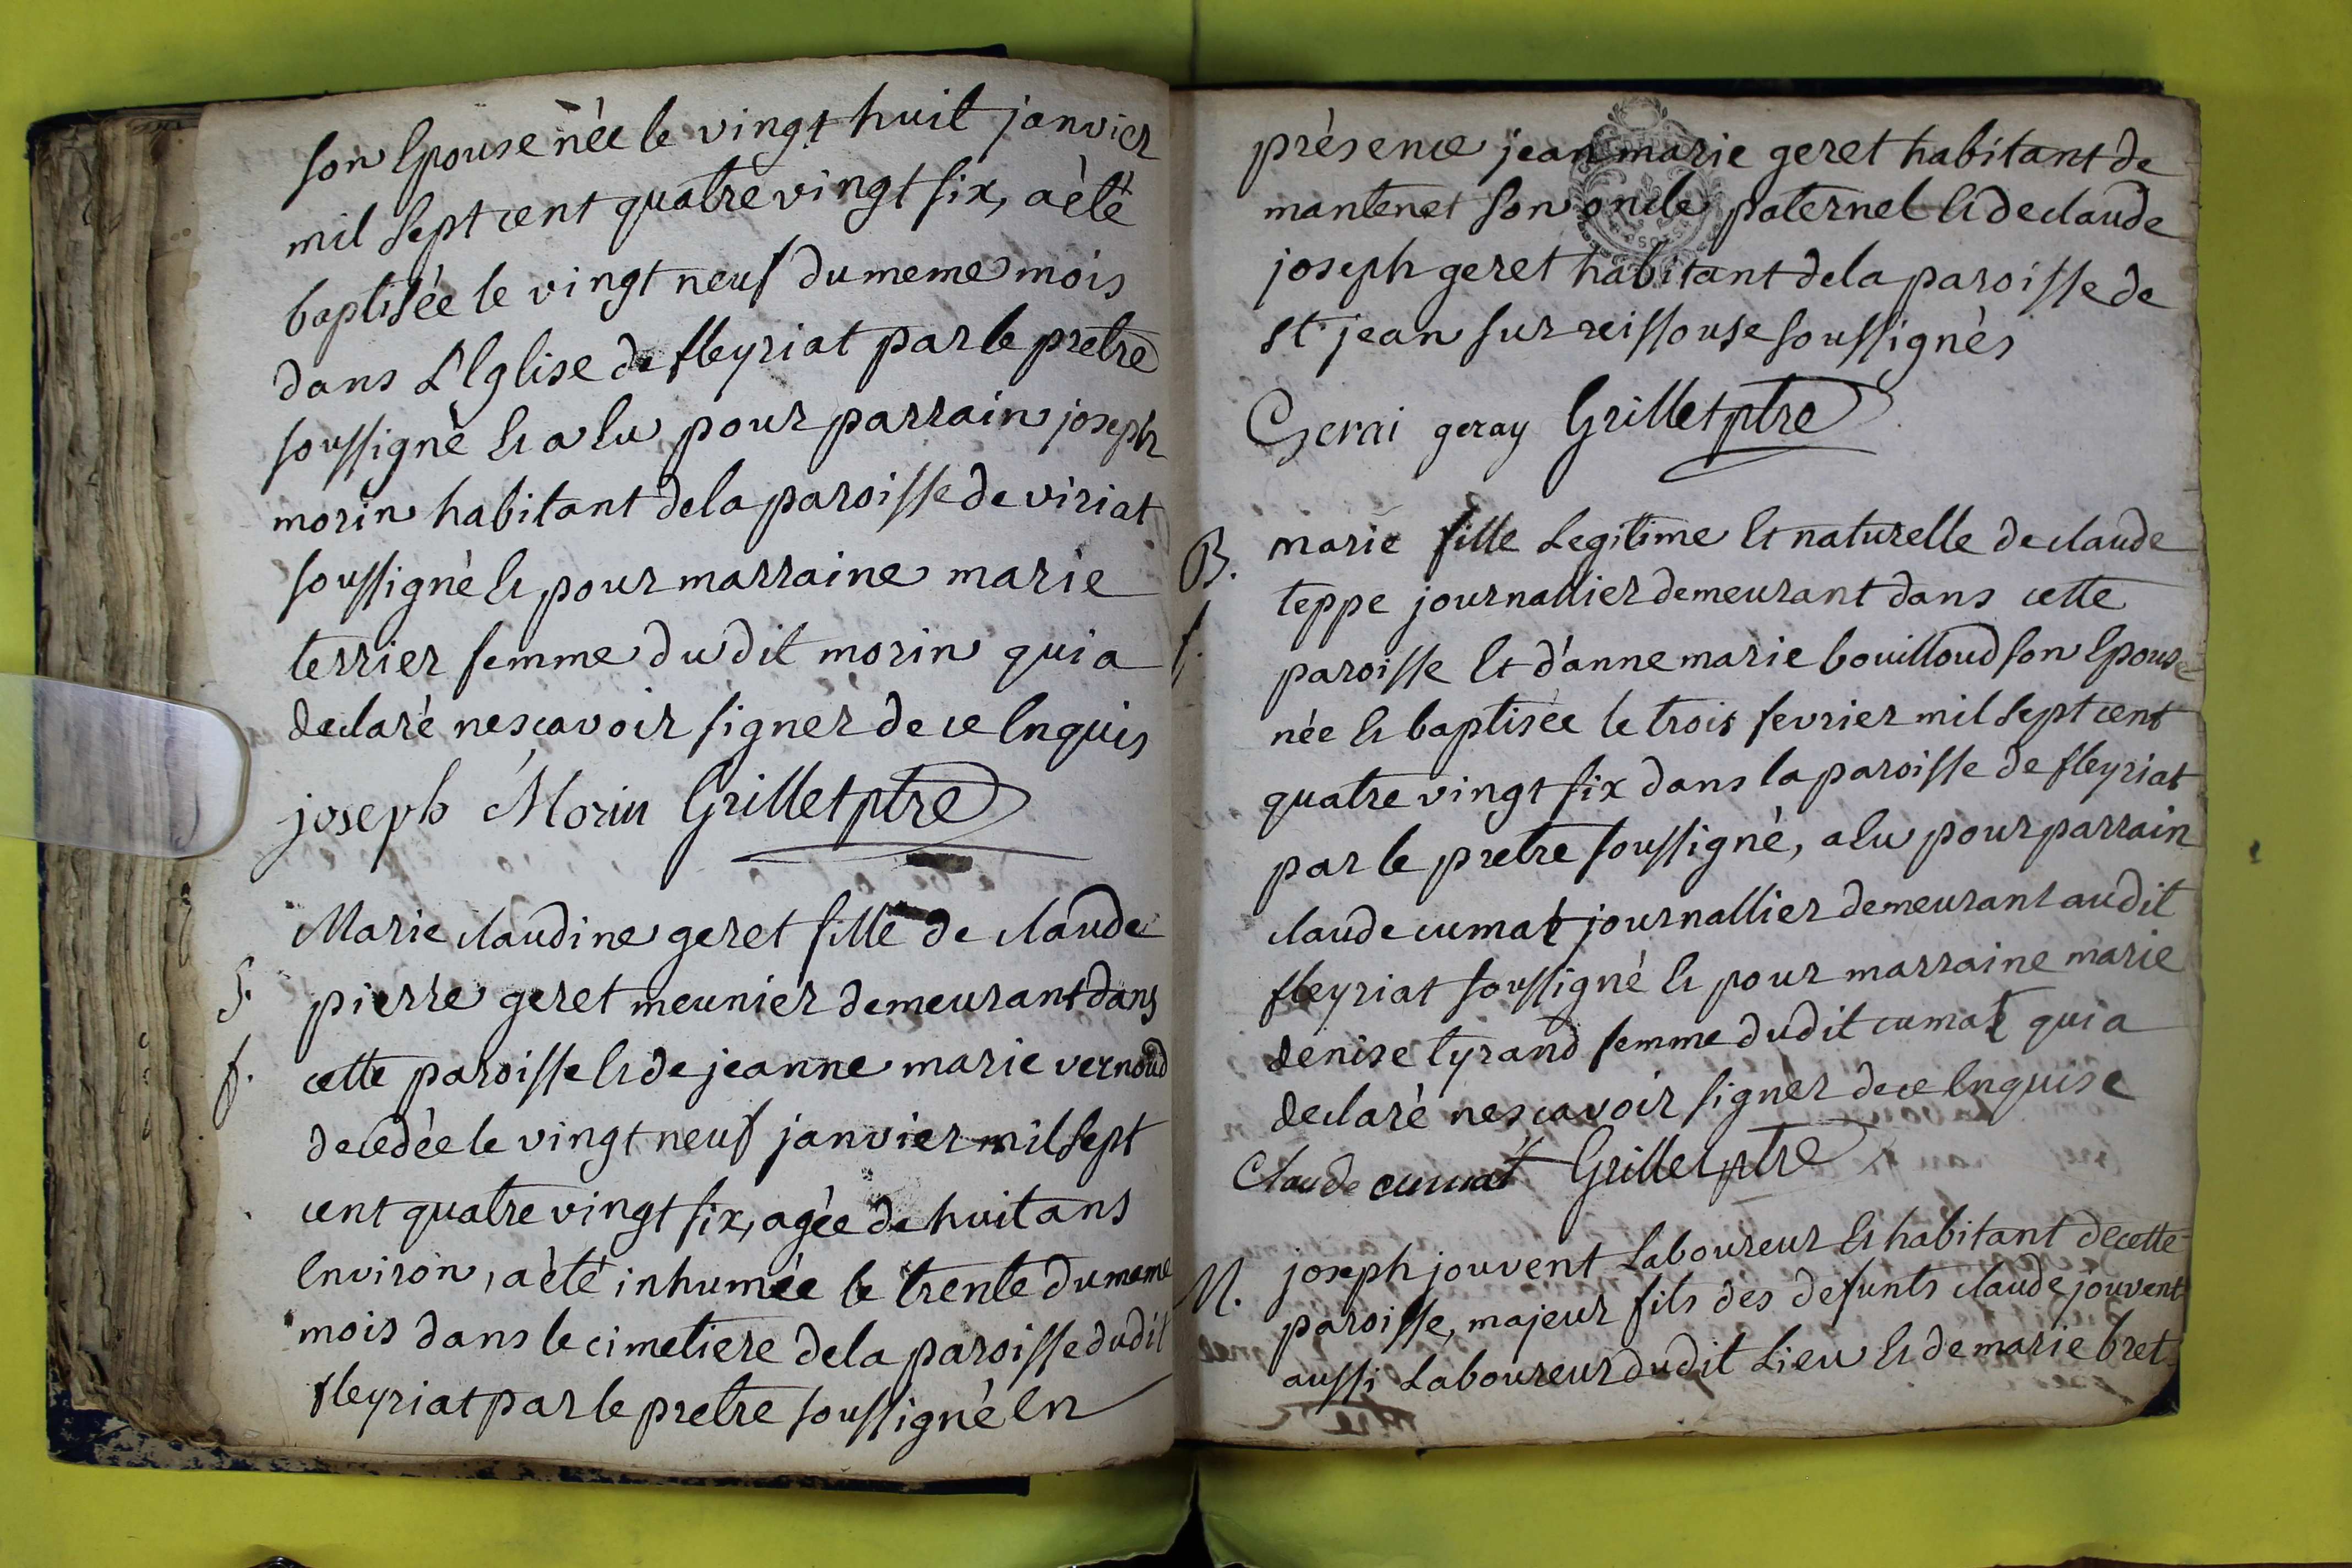 son Epouse née le vingt huit janvier
mil sept cent quatre vingt six, a èté
baptisée le vingt neuf du meme mois
dans L'Eglise de fleyriat par le pretre
soussigné Et a Eu pour parrain joseph
morin habitant de la paroisse de viriat
soussigné Et pour marraine marie
terrier femme dudit morin qui a
declaré nesçavoir signer de ce Enquis
joseph Morin Grillet ptre
Marie claudine geret fille de claude
S. pierre geret meunier demeurant dans
f. cette paroisse Et de jeanne marie vernoud
decedée le vingt neuf janvier mil sept
cent quatre vingt six, agée de huit ans
Environ, a èté inhumée le trente du meme
mois dans le cimetiere de la paroisse dudit
fleyriat par le pretre soussigné En
présence jean marie geret habitant de
mantenet son oncle paternel Et de claude
joseph geret habitant de la paroisse de
st jean sur reissouse soussignès
Gerai geray Grillet ptre
B. marie fille Legitime Et naturelle de claude
teppe journallier demeurant dans cette
f. paroisse Et d'anne marie bouilloud son Epouse
née Et baptisée le trois fevrier mil sept cent
quatre vingt six dans la paroisse de fleyriat
par le pretre soussigné, a Eu pour parrain
claude cumat journallier demeurant audit
fleyriat soussigné Et pour marraine marie
denise tyrand femme dudit cumat qui a
declaré nesçavoir signer de ce Enquise
Claude cumat Grillet ptre
M. joseph jouvent Laboureur Et habitant de cette
paroisse, majeur fils des defunts claude jouvent
aussi Laboureur dudit Lieu Et de marie bret